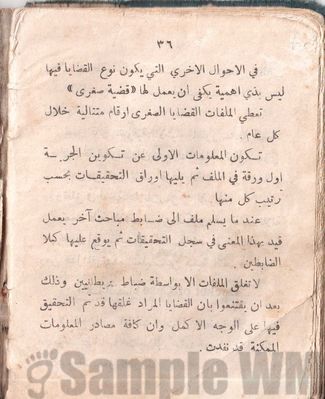 ٣٦
في الاحوال الاخرى التي يكون نوع القضايا فيها
ليس بذي اهمية يكفى ان يعمل لها «قضية صغرى»
تعطي الملفات القضايا الصغرى ارقام متتالية خلال
كل عام .
تكون المعلومات الاولى عن تكوين الجريمة
اول ورقة في الملف ثم يليها اوراق التحقيقات بحسب
ترتيب كل منها
عند ما يسلم ملف الى ضابط مباحث آخر يعمل
قيد بهذا المعنى في سجل التحقيقات ثم يوقع عليها كلا
الضابطين .
لا تغلق الملفات الا بواسطة ضباط بريطانيين وذلك
بعد ان يقتنعوا بان القضايا المراد غلقها قد تم التحقيق
فيها على الوجه الاكمل وان كافة مصادر المعلومات
الممكنة قد نفدت .
Sample WM